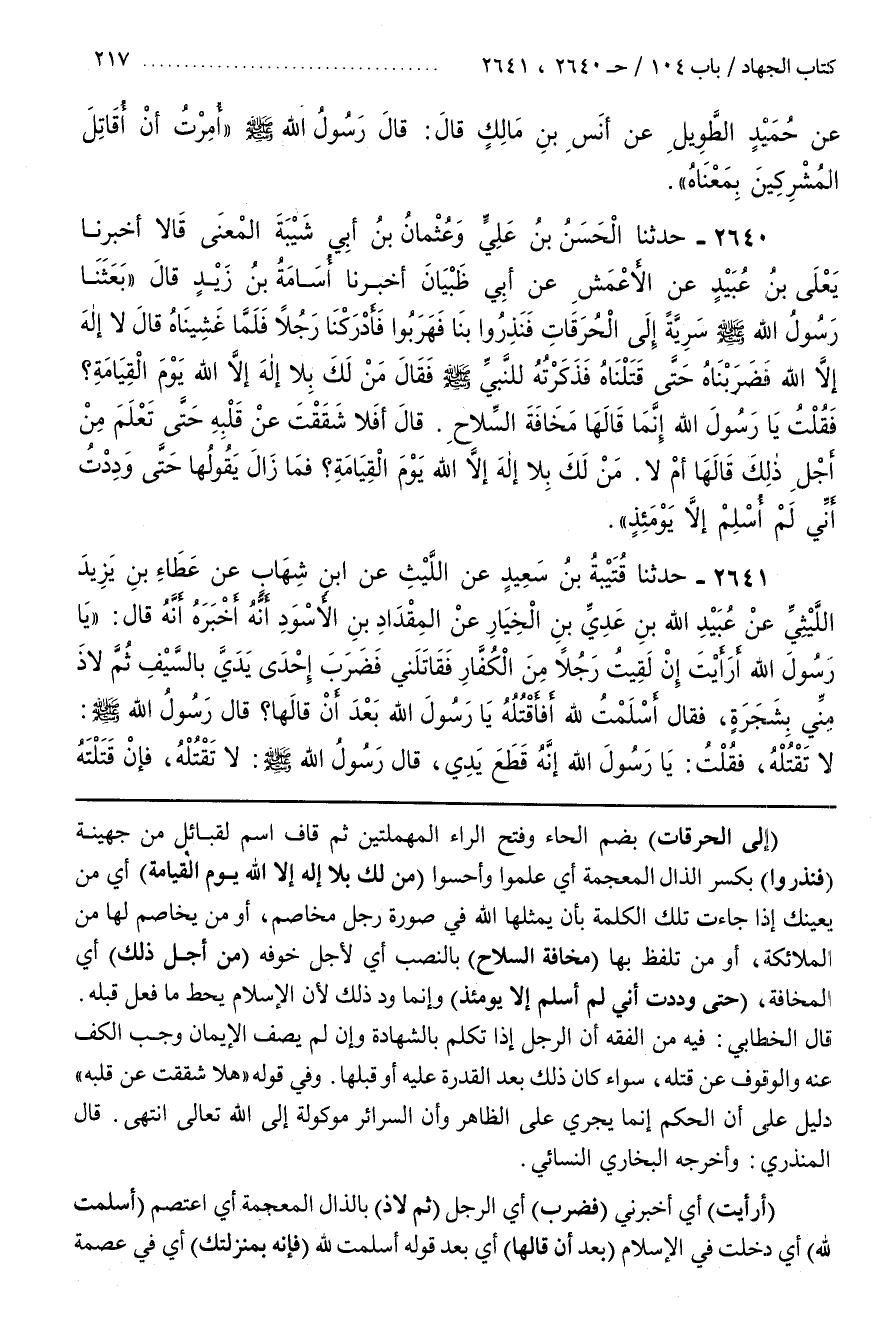 كتاب الجهاد / باب ١٠٤ / حـ ٢٦٤٠ ، ٢٦٤١ .................................... ٢١٧
عن حُمَيْدٍ الطَّوِيلِ عن أَنَسِ بنِ مَالِكٍ قالَ: قالَ رَسُولُ الله ﷺ «أُمِرْتُ أنْ أُقَاتِلَ
المُشْرِكِينَ بِمَعْنَاهُ».
٢٦٤٠ ـ حدثنا الْحَسَنُ بنُ عَلِيٍّ وَعُثْمانُ بنُ أبِي شَيْبَةَ المْعنَى قَالا أخبرنا
يَعْلَى بنُ عُبَيْدٍ عن الأَعْمَشِ عن أبِي ظَبْيَانَ أخبرنا أُسَامَةُ بنُ زَيْدٍ قالَ «بَعَثَنَا
رَسُولُ الله ﷺ سَرِيَّةً إلَى الْحُرَقَاتِ فَنَذِرُوا بنَا فَهَرَبُوا فَأَدْرَكْنَا رَجُلاً فَلَمَّا غَشِينَاهُ قالَ لا إلٰهَ
إلاَّ الله فَضَرَبْنَاهُ حَتَّى قَتَلْنَاهُ فَذَكَرْتُهُ للنَّبيِّ ﷺ فَقَالَ مَنْ لَكَ بِلا إلٰهَ إلاَّ الله يَوْمَ الْقِيَامَةِ؟
فَقُلْتُ يَا رَسُولَ الله إنَّمَا قَالَهَا مَخَافَةَ السِّلاحِ. قالَ أفَلا شَقَقْتَ عنْ قَلْبِهِ حَتَّى تَعْلَمَ مِنْ
أَجْلِ ذٰلِكَ قَالَهَا أمْ لا. مَنْ لَكَ بِلا إلٰهَ إلاَّ الله يَوْمَ الْقِيَامَةِ؟ فمَا زَالَ يَقُولُها حَتَّى وَدِدْتُ
أَنِّي لَمْ أُسْلِمْ إلاَّ يَوْمَئِذٍ».
٢٦٤١ ـ حدثنا قُتَيْبَةُ بنُ سَعِيدٍ عن اللَّيْثِ عن ابنِ شِهَابٍ عن عَطَاءِ بنِ يَزِيدَ
اللَّيْثِيِّ عنْ عُبَيْدِ الله بنِ عَدِيِّ بنِ الْخِيَارِ عنْ المِقْدَادِ بنِ الأَسْوَدِ أنَّهُ أخْبَرَهُ أنَّهُ قال: «يَا
رَسُولَ الله أرَأَيْتَ إنْ لَقِيتُ رَجُلاً مِنَ الْكُفَّارِ فَقَاتَلَني فَضَرَبَ إحْدَى يَدَيَّ بالسَّيْفِ ثُمَّ لاذَ
مِنِّي بِشَجَرَةٍ، فقال أَسْلَمْتُ لله أفَأَقْتُلُهُ يَا رَسُولَ الله بَعْدَ أنْ قالَها؟ قال رَسُولُ الله ﷺ:
لا تَقْتُلْهُ، فقُلْتُ: يَا رَسُولَ الله إنَّهُ قَطَعَ يَدِي، قال رَسُولُ الله ﷺ: لا تَقْتُلْهُ، فإنْ قَتَلْتَهُ
(إلى الحرقات) بضم الحاء وفتح الراء المهملتين ثم قاف اسم لقبائل من جهينة
(فنذروا) بكسر الذال المعجمة أي علموا وأحسوا (من لك بلا إله إلا الله يوم القيامة) أي من
يعينك إذا جاءت تلك الكلمة بأن يمثلها الله في صورة رجل مخاصم، أو من يخاصم لها من
الملائكة، أو من تلفظ بها (مخافة السلاح) بالنصب أي لأجل خوفه (من أجل ذلك) أي
المخافة، (حتى وددت أني لم أسلم إلا يومئذ) وإنما ود ذلك لأن الإسلام يحط ما فعل قبله.
قال الخطابي: فيه من الفقه أن الرجل إذا تكلم بالشهادة وإن لم يصف الإيمان وجب الكف
عنه والوقوف عن قتله، سواء كان ذلك بعد القدرة عليه أو قبلها. وفي قوله«هلا شققت عن قلبه»
دليل على أن الحكم إنما يجري على الظاهر وأن السرائر موكولة إلى الله تعالى انتهى. قال
المنذري: وأخرجه البخاري النسائي.
(أرأيت) أي أخبرني (فضرب) أي الرجل (ثم لاذ) بالذال المعجمة أي اعتصم (أسلمت
لله) أي دخلت في الإسلام (بعد أن قالها) أي بعد قوله أسلمت لله (فإنه بمنزلتك) أي في عصمة